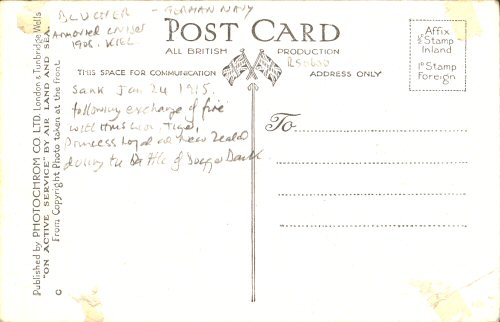 BLUCHER - GERMAN NAVY
Armored Cruiser
1908. KIEL
POST CARD
ALL BRITISH PRODUCTION
THIS SPACE FOR COMMUNICATION ADDRESS ONLY
Affix
½d Stamp
Inland
1d Stamp
Foreign
Sank Jan 24 1915.
following exchange of fire
with HMS Lion, Tiger,
Princess Royal and New Zealand
during the Battle of Dogger Bank
To
Published by PHOTOCHROM CO LTD. London & Tunbridge Wells
"ON ACTIVE SERVICE" BY AIR LAND AND SEA.
From Copyright Photo taken at the front
C